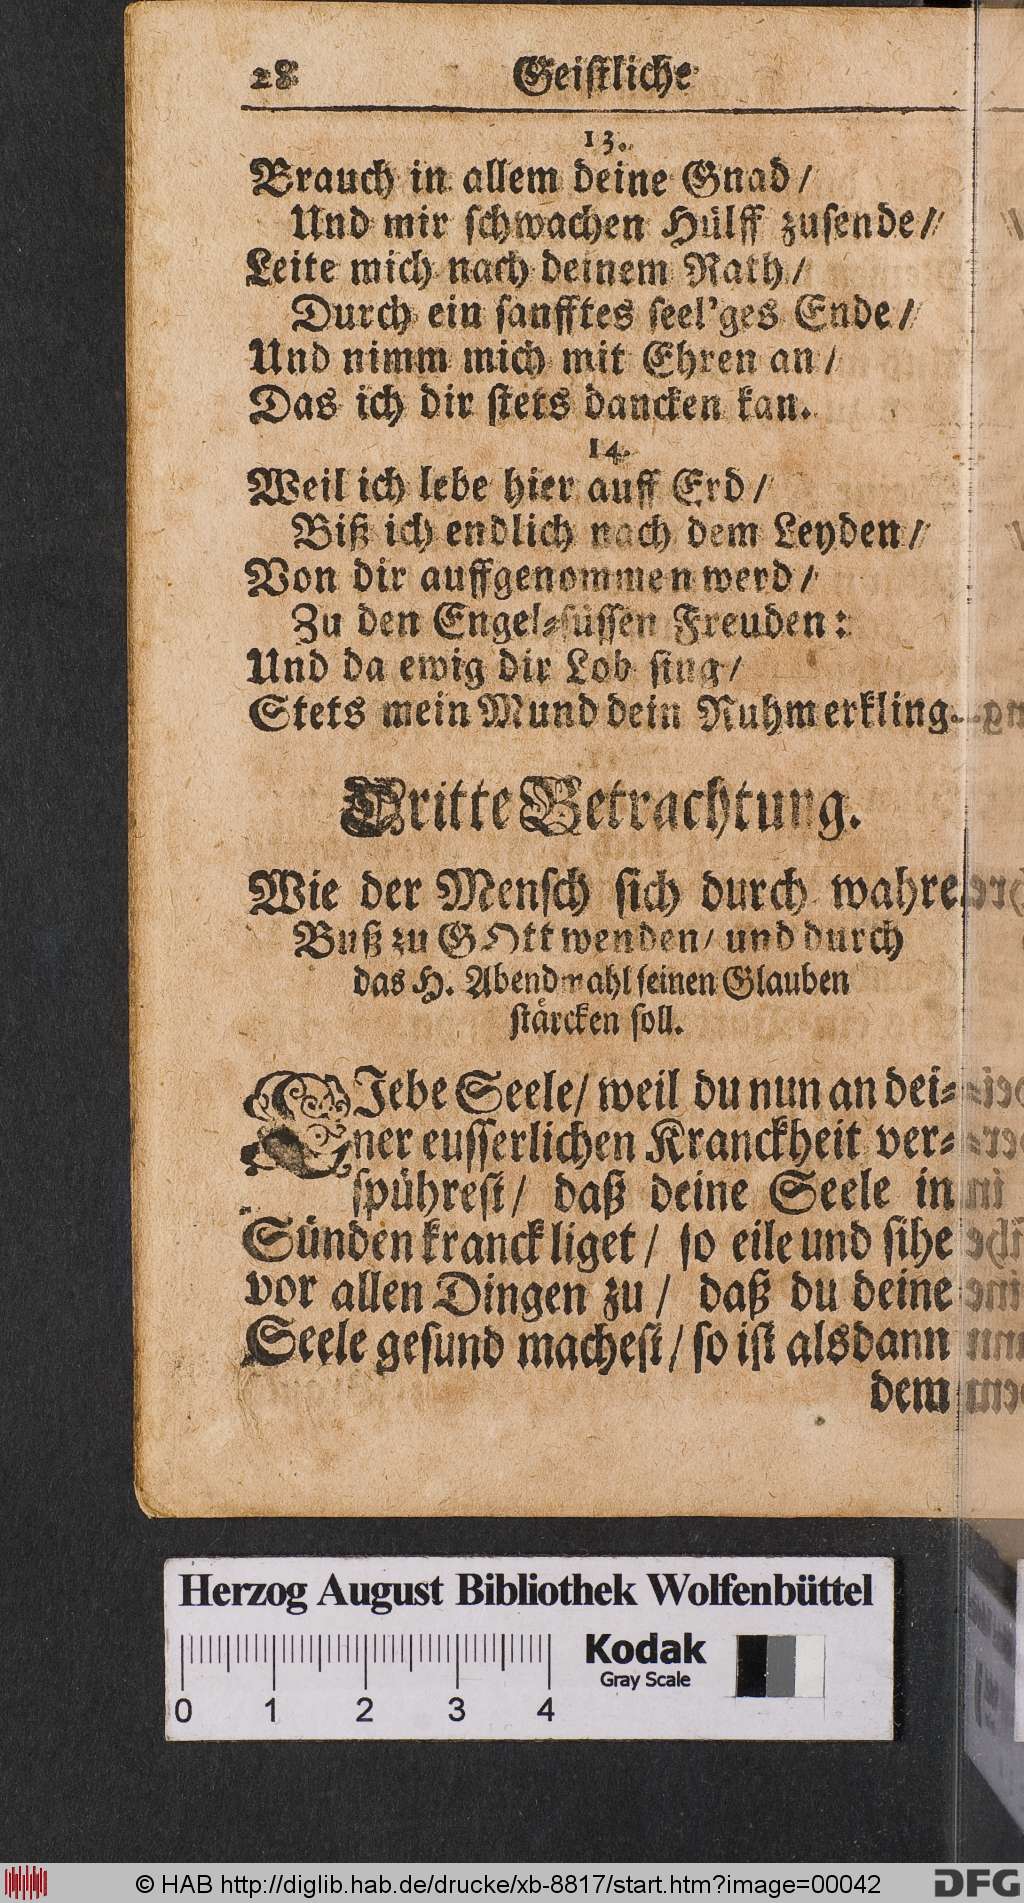 28 Geistliche
13.
Brauch in allem deine Gnad /
Und mir schwachen Hülff zusende /
Leite mich nach deinem Rath /
Durch ein sanfftes seel'ges Ende /
Und nimm mich mit Ehren an /
Das ich dir stets dancken kan.
14.
Weil ich lebe hier auff Erd /
Biß ich endlich nach dem Leyden /
Von dir auffgenommen werd /
Zu den Engel-süssen Freuden:
Und da ewig dir Lob sing /
Stets mein Mund dein Ruhm erkling.
Dritte Betrachtung.
Wie der Mensch sich durch wahre
Buß zu GOtt wenden / und durch
das H. Abendmahl seinen Glauben
stärcken soll.
LIebe Seele / weil du nun an dei-
ner eusserlichen Kranckheit ver-
spührest / daß deine Seele in
Sünden kranck liget / so eile und sihe
vor allen Dingen zu / daß du deine
Seele gesund machest / so ist alsdann
dem
Herzog August Bibliothek Wolfenbüttel
Kodak
Gray Scale
0 1 2 3 4
© HAB http://diglib.hab.de/drucke/xb-8817/start.htm?image=00042
DFG